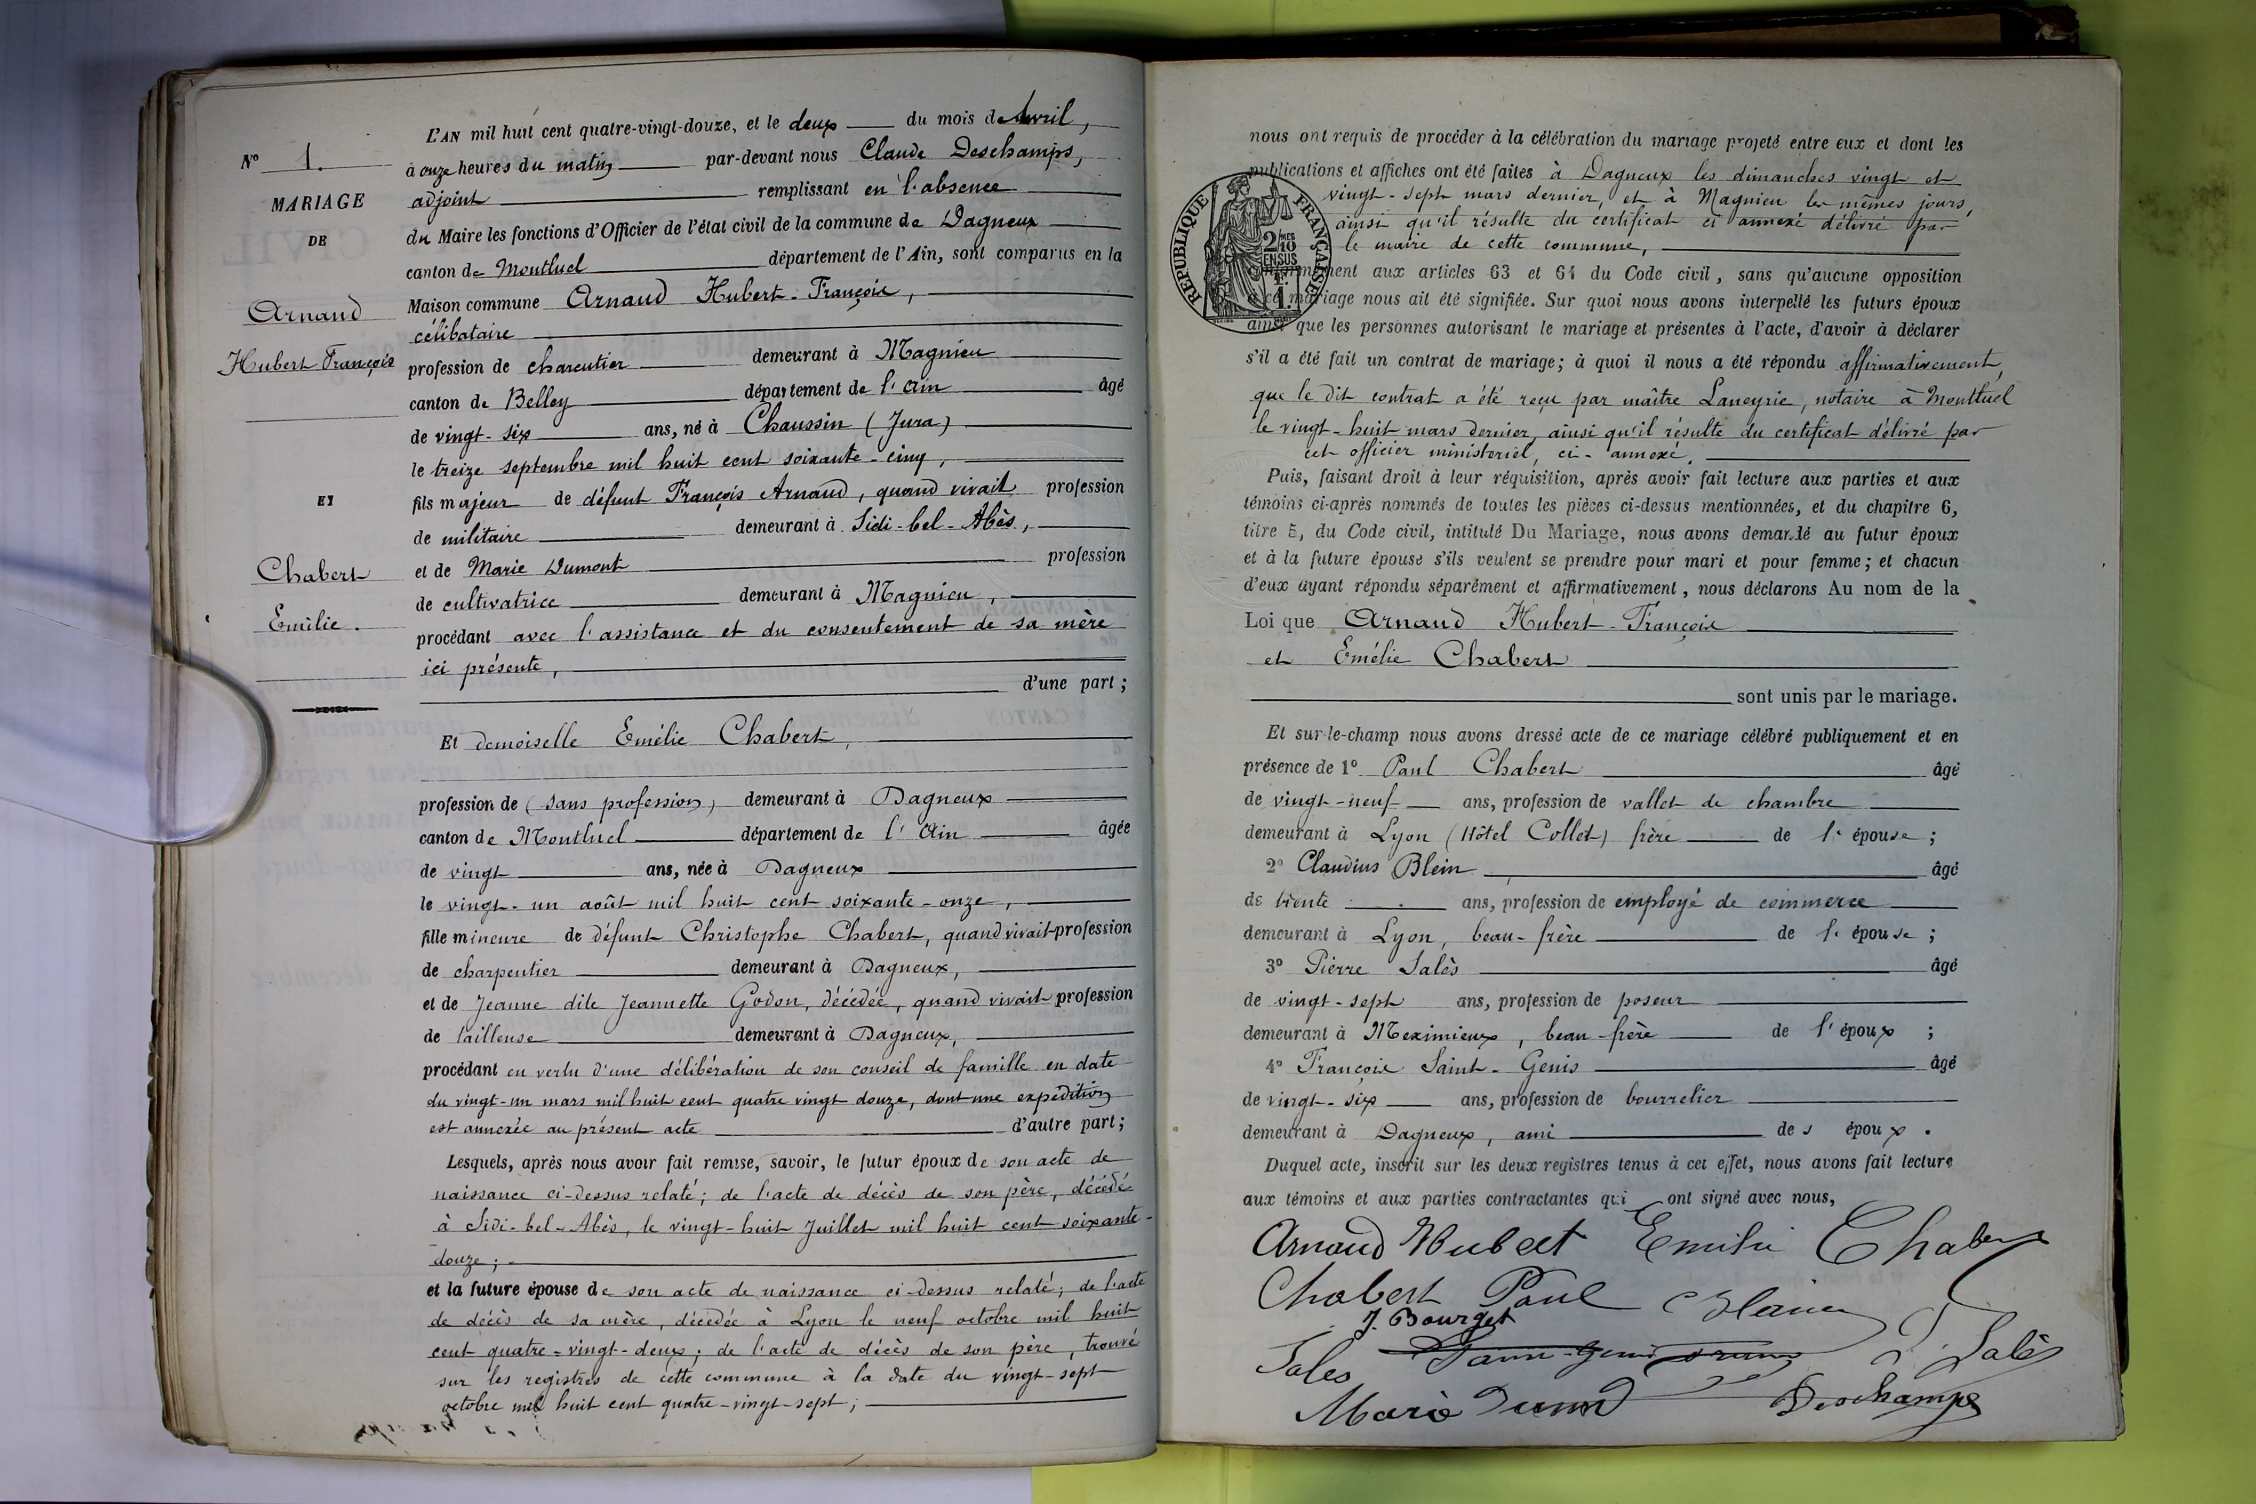 L'AN mil huit cent quatre-vingt-douze, et le deux du mois de Avril,
N° 1.
à onze heures du matin par-devant nous Claude Deschamps,
MARIAGE
adjoint remplissant en l'absence
DE
du Maire les fonctions d'Officier de l'état civil de la commune de Dagneux
canton de Montluel département de l'Ain, sont comparus en la
Arnaud
Maison commune Arnaud Hubert-François,
célibataire
Hubert François
profession de charcutier demeurant à Magnieu
canton de Belley département de l'Ain âgé
de vingt-six ans, né à Chaussin (Jura)
le treize septembre mil huit cent soixante-cinq,
ET
fils majeur de défunt François Arnaud, quand vivait profession
de militaire demeurant à Sidi-bel-Abès,
Chabert
et de Marie Dumont profession
de cultivatrice demeurant à Magnieu,
Emélie.
procédant avec l'assistance et du consentement de sa mère
ici présente,
d'une part;
Et demoiselle Emélie Chabert,
profession de (sans profession) demeurant à Dagneux
canton de Montluel département de l'Ain âgée
de vingt ans, née à Dagneux
le vingt-un août mil huit cent soixante-onze,
fille mineure de défunt Christophe Chabert, quand vivait profession
de charpentier demeurant à Dagneux,
et de Jeanne dite Jeannette Godon, décédée, quand vivait profession
de tailleuse demeurant à Dagneux,
procédant en vertu d'une délibération de son conseil de famille en date
du vingt-un mars mil huit cent quatre vingt douze, dont une expédition
est annexée au présent acte d'autre part;
Lesquels, après nous avoir fait remise, savoir, le futur époux de son acte de
naissance ci-dessus relaté; de l'acte de décès de son père, décédé
à Sidi-bel-Abès, le vingt-huit Juillet mil huit cent soixante-
douze;
et la future épouse de son acte de naissance ci-dessus relaté; de l'acte
de décès de sa mère, décédée à Lyon le neuf octobre mil huit
cent quatre-vingt-deux; de l'acte de décès de son père, trouvé
sur les registres de cette commune à la date du vingt-sept
octobre mil huit cent quatre-vingt-sept;
nous ont requis de procéder à la célébration du mariage projeté entre eux et dont les
publications et affiches ont été faites à Dagneux les dimanches vingt et
vingt-sept mars dernier, et à Magnieu les mêmes jours,
ainsi qu'il résulte du certificat ci annexé délivré par
le maire de cette commune,
RÉPUBLIQUE FRANÇAISE
2/10 EN SUS
1F.
Conformément aux articles 63 et 64 du Code civil, sans qu'aucune opposition
à ce mariage nous ait été signifiée. Sur quoi nous avons interpellé les futurs époux
ainsi que les personnes autorisant le mariage et présentes à l'acte, d'avoir à déclarer
s'il a été fait un contrat de mariage; à quoi il nous a été répondu affirmativement,
que le dit contrat a été reçu par maître Laneyrie, notaire à Montluel
le vingt-huit mars dernier, ainsi qu'il résulte du certificat délivré par
cet officier ministériel, ci-annexé.
Puis, faisant droit à leur réquisition, après avoir fait lecture aux parties et aux
témoins ci-après nommés de toutes les pièces ci-dessus mentionnées, et du chapitre 6,
titre 5, du Code civil, intitulé Du Mariage, nous avons demandé au futur époux
et à la future épouse s'ils veulent se prendre pour mari et pour femme; et chacun
d'eux ayant répondu séparément et affirmativement, nous déclarons Au nom de la
Loi que Arnaud Hubert-François
et Emélie Chabert
sont unis par le mariage.
Et sur-le-champ nous avons dressé acte de ce mariage célébré publiquement et en
présence de 1° Paul Chabert âgé
de vingt-neuf ans, profession de vallet de chambre
demeurant à Lyon (Hôtel Collet) frère de l'épouse;
2° Claudius Blein âgé
de trente ans, profession de employé de commerce
demeurant à Lyon, beau-frère de l'épouse;
3° Pierre Salès âgé
de vingt-sept ans, profession de poseur
demeurant à Meximieux, beau-frère de l'époux;
4° François Saint-Genis âgé
de vingt-six ans, profession de bourrelier
demeurant à Dagneux, ami des époux.
Duquel acte, inscrit sur les deux registres tenus à cet effet, nous avons fait lecture
aux témoins et aux parties contractantes qui ont signé avec nous,
Arnaud Hubert Emélie Chabert
Chabert Paul
J. Bourget
Sales Saint-Genis P. Salès
Marie Dumont Deschamps